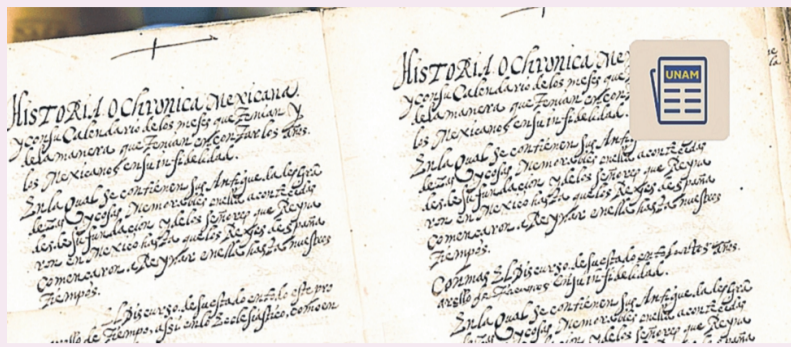 HISTORIA O Chronica Mexicana.
y con su Calendario. de los meses que Tenian y
de la manera que Tenian en contar los años.
los Mexicanos en su infidelidad.
En la Qual Se contienen sus Antigue.da.des Gra
dezas y cosas Memorables en ella acontecidas
des.de su fundacion y de los Señores que Reyna
ron en Mexico hasta que los Reyes de España
Comencaron. a Reynar en ella hasta nuestros
Tiempos.
El Discurso. de su estado en todo este pro
de Tiempo, assi en lo Ecclesiastico, como en
HISTORIA O Chronica Me
y con su Calendario. de los meses que
de la manera que Tenian en con
los Mexicanos en su infidelidad.
En la Qual Se contienen Sus Antig
dezas y cosas Memorables en ella acontecidas
des.de su fundacion y de los Señores que Reyna
ron en Mexico hasta que los Reyes de España
Comencaron. a Reynar en ella hasta nuestros
Tiempos.
Con mas El Discurso. de su estado en todo años.
de Tiempos en su infidelidad.
En la Qual Se contienen Sus Antigue.da.des Gra
dezas y cosas Memorables en ella acontecidas
des.de su fundacion y de los Señores que Reyna
UNAM